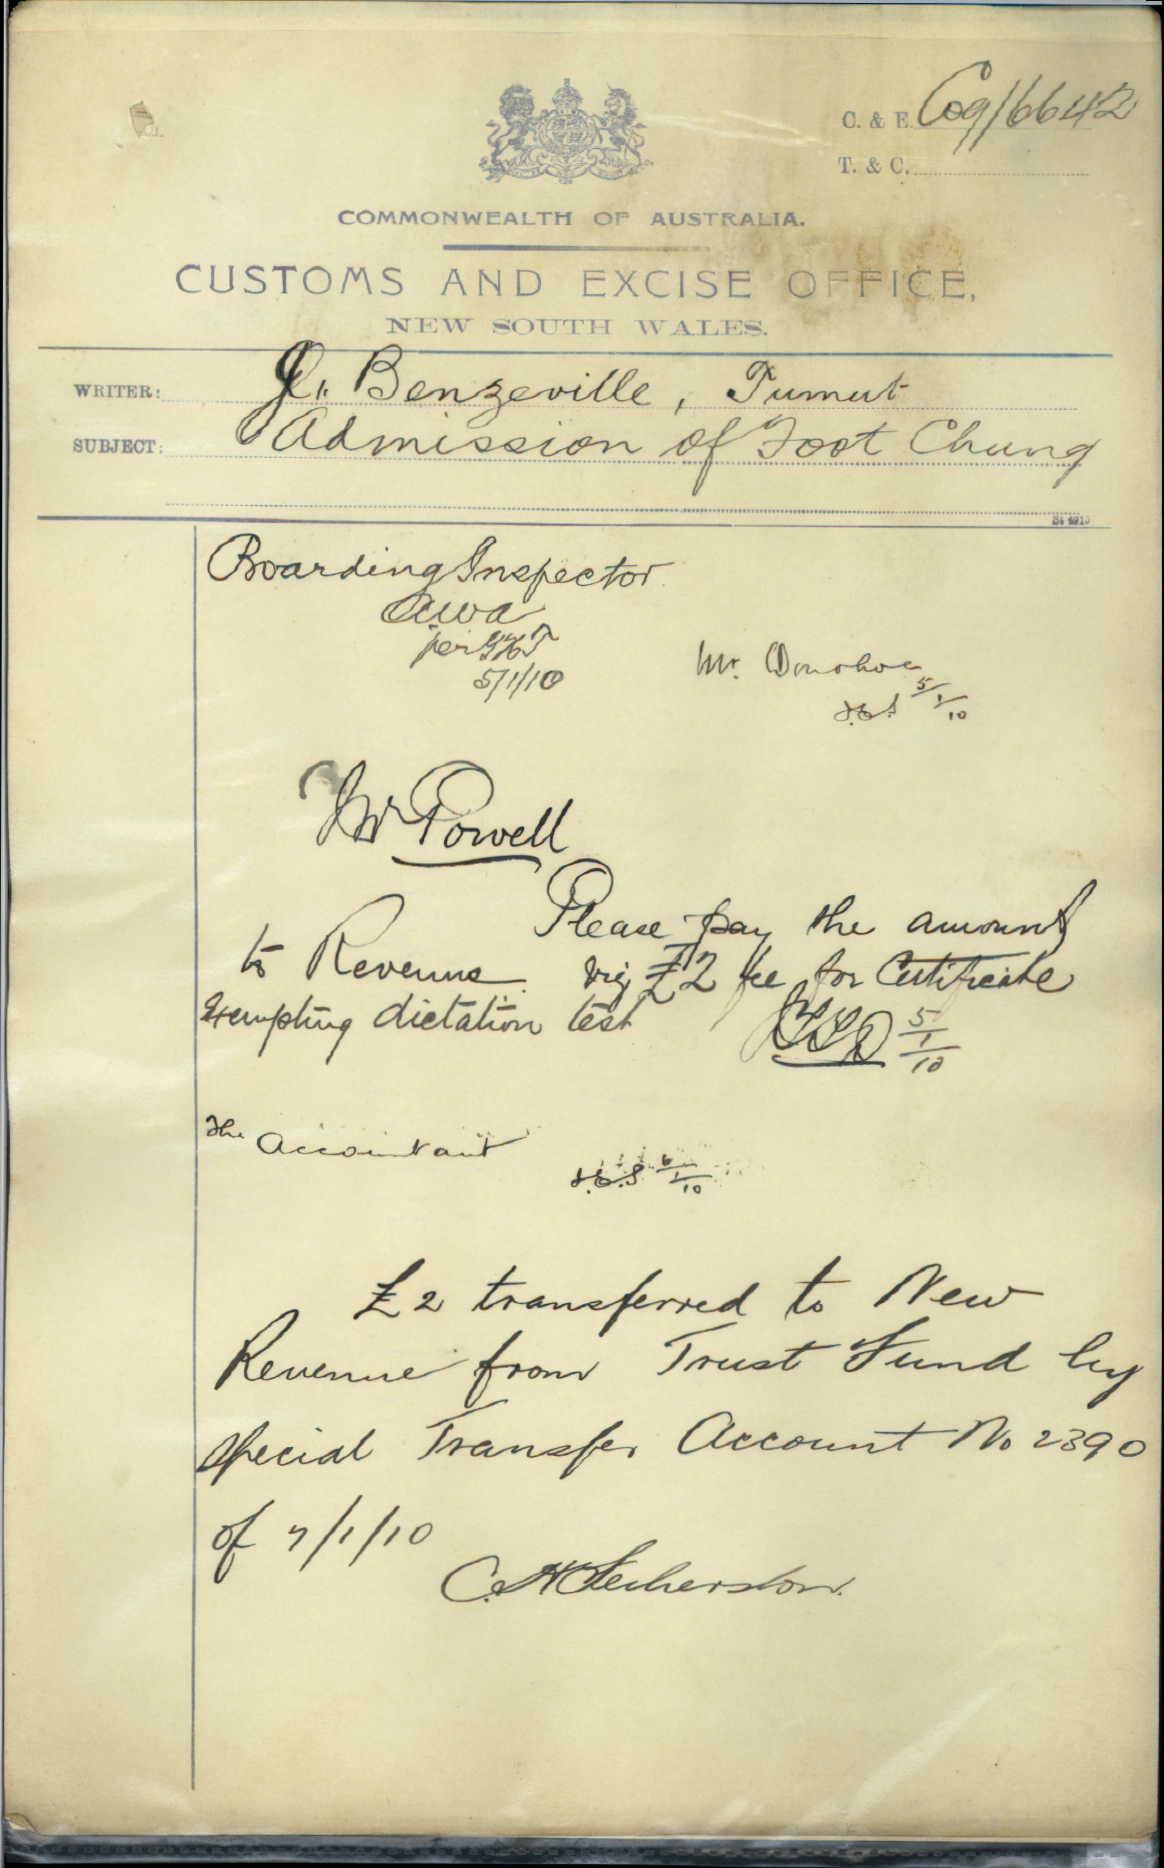 C. & E. C09/6642
T. & C.
COMMONWEALTH OF AUSTRALIA.
CUSTOMS AND EXCISE OFFICE,
NEW SOUTH WALES.
WRITER: Benzeville, Tumut
SUBJECT: Admission of Foot Chung
Boarding Inspector
AWA
per
5/1/10
Mr. Donohoe
5/1/10
Mr Powell
Please pay the amount
to Revenue viz £2 fee for Certificate
Exempting dictation test
5/1/10
The Accountant
6/1/10
£2 transferred to New
Revenue from Trust Fund by
Special Transfer Account No 2390
of 7/1/10